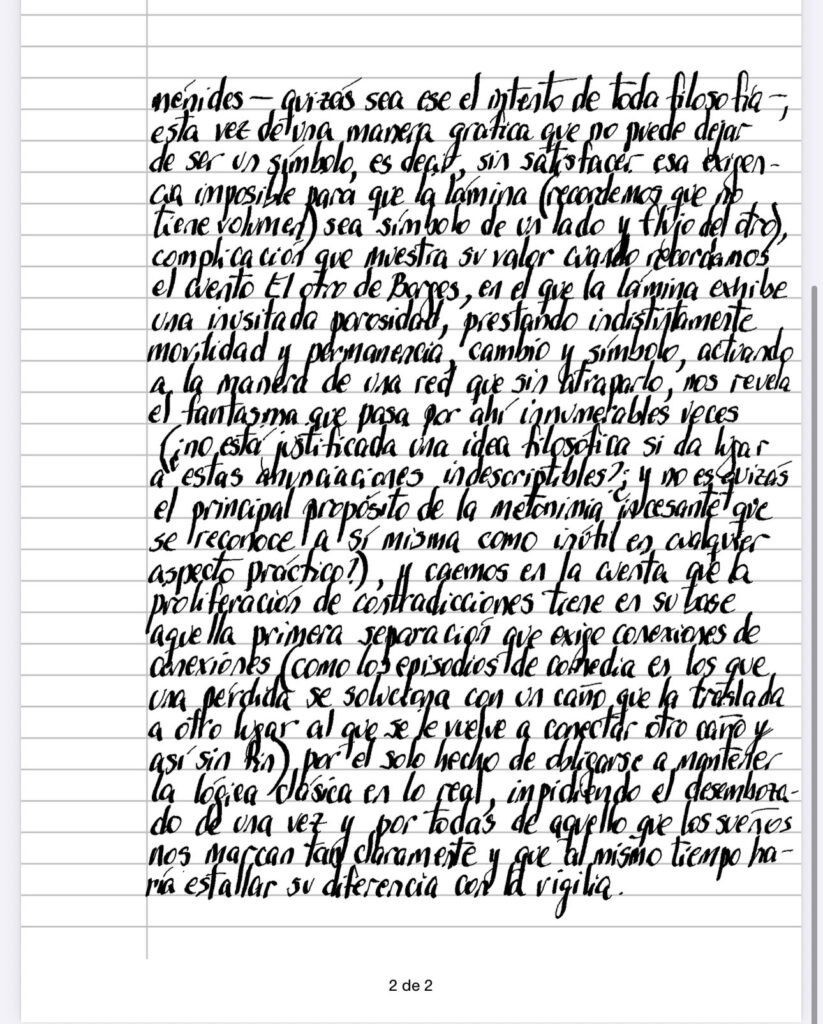 ménides — quizás sea ese el intento de toda filosofía —,
esta vez de una manera gráfica que no puede dejar
de ser un símbolo, es decir, sin satisfacer esa exigen-
cia imposible para que la lámina (recordemos que no
tiene volumen) sea símbolo de un lado y flujo del otro),
complicación que muestra su valor cuando recordamos
el cuento El otro de Borges, en el que la lámina exhibe
una inusitada porosidad, prestando indistintamente
movilidad y permanencia, cambio y símbolo, actuando
a la manera de una red que sin atraparlo, nos revela
el fantasma que pasa por ahí innumerables veces
(¿no está justificada una idea filosófica si da lugar
a estas anunciaciones indescriptibles?; y no es quizás
el principal propósito de la metonimia incesante que
se reconoce a sí misma como inútil en cualquier
aspecto práctico?), y caemos en la cuenta que la
proliferación de contradicciones tiene en su base
aquella primera separación que exige conexiones de
conexiones (como los episodios de comedia en los que
una pérdida se soluciona con un caño que la traslada
a otro lugar al que se le vuelve a conectar otro caño y
así sin fin) por el solo hecho de obligarse a mantener
la lógica clásica en lo real, impidiendo el desemboza-
do de una vez y por todas de aquello que los sueños
nos marcan tan claramente y que al mismo tiempo ha-
ría estallar su diferencia con la vigilia.
2 de 2